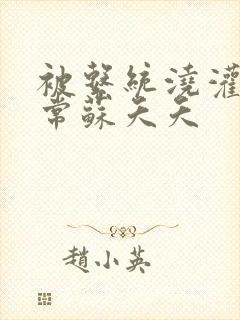 被繫統澆灌
常蘇夭夭
趙小英